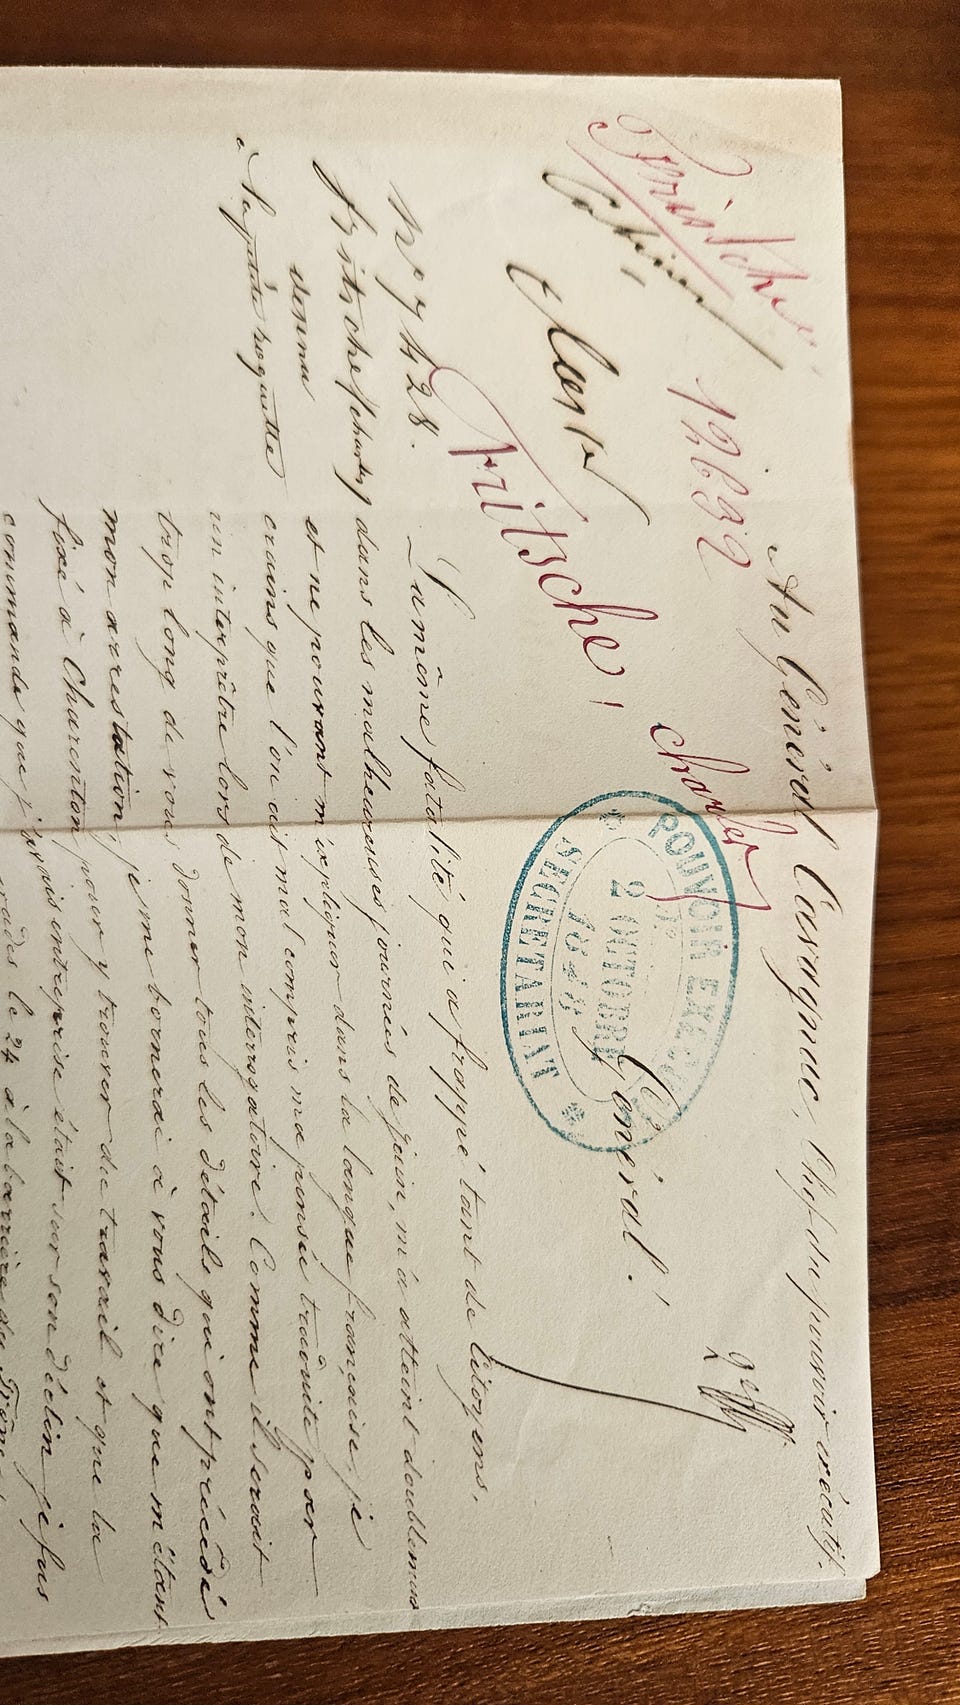 Au Général Cavagnac, Chef du pouvoir exécutif.
Fritsche
12692
charles
POUVOIR EXÉCUTIF
2 OCTOBRE
1848
SECRETARIAT
Général!
Fritsche!
La même fatalité qui a frappé tant de Citoyens,
No 7428.
Fritsche (charles) dans les malheureuses journées de juin, m'a atteint doublement
venu et ne pouvant m'expliquer dans la langue française, je
à la petite roquette crains que l'on ait mal compris ma pensée traduite par
un interprètre lors de mon interrogatoire. Comme il serait
trop long de vous donner tous les détails qui ont précédé
mon arrestation, je me bornerai à vous dire que m'étant
fixé à Charenton, pour y trouver du travail et que la
commande que j'avais entreprise était sur son déclin je fus
le 24 à la barrière du Trône